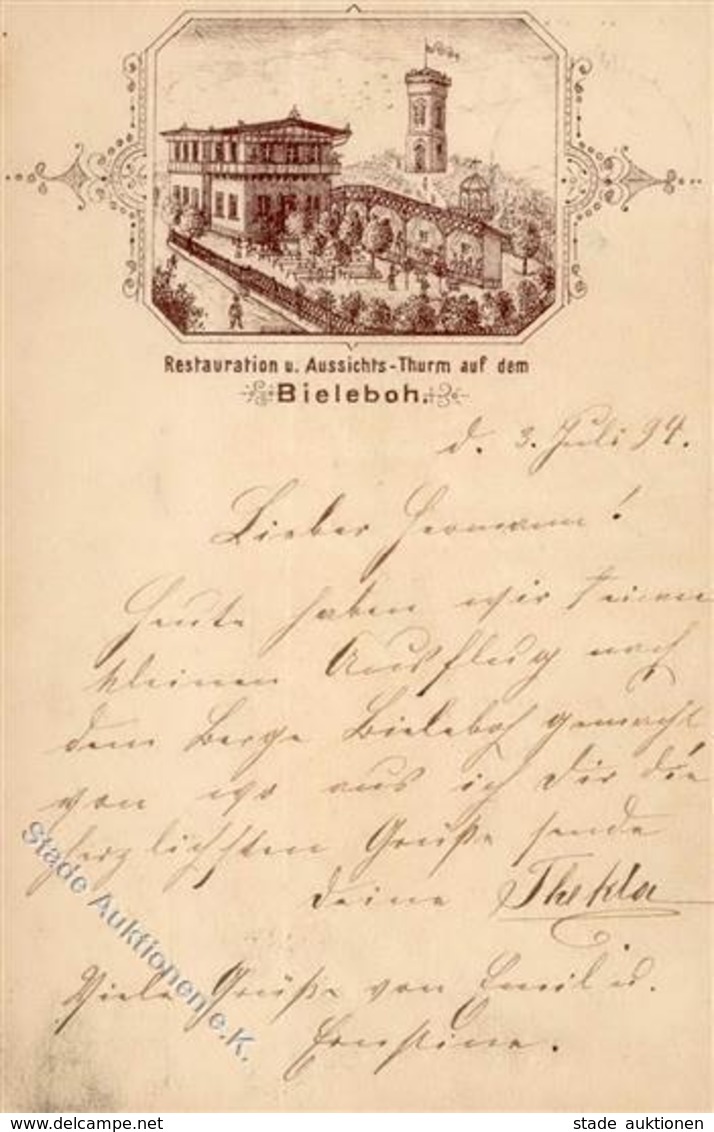 Restauration u. Aussichts-Thurm auf dem
Bieleboh.
d. 3. Juli 94.
Lieber Hermann!
Heute haben wir einen
kleinen Ausflug nach
dem Berge Bieleboh gemacht
von wo aus ich Dir die
herzlichsten Grüße sende
deine Thekla
Viele Grüße von Emil u.
Ernstine.
Stade Auktionen e.K.
stade auktionen